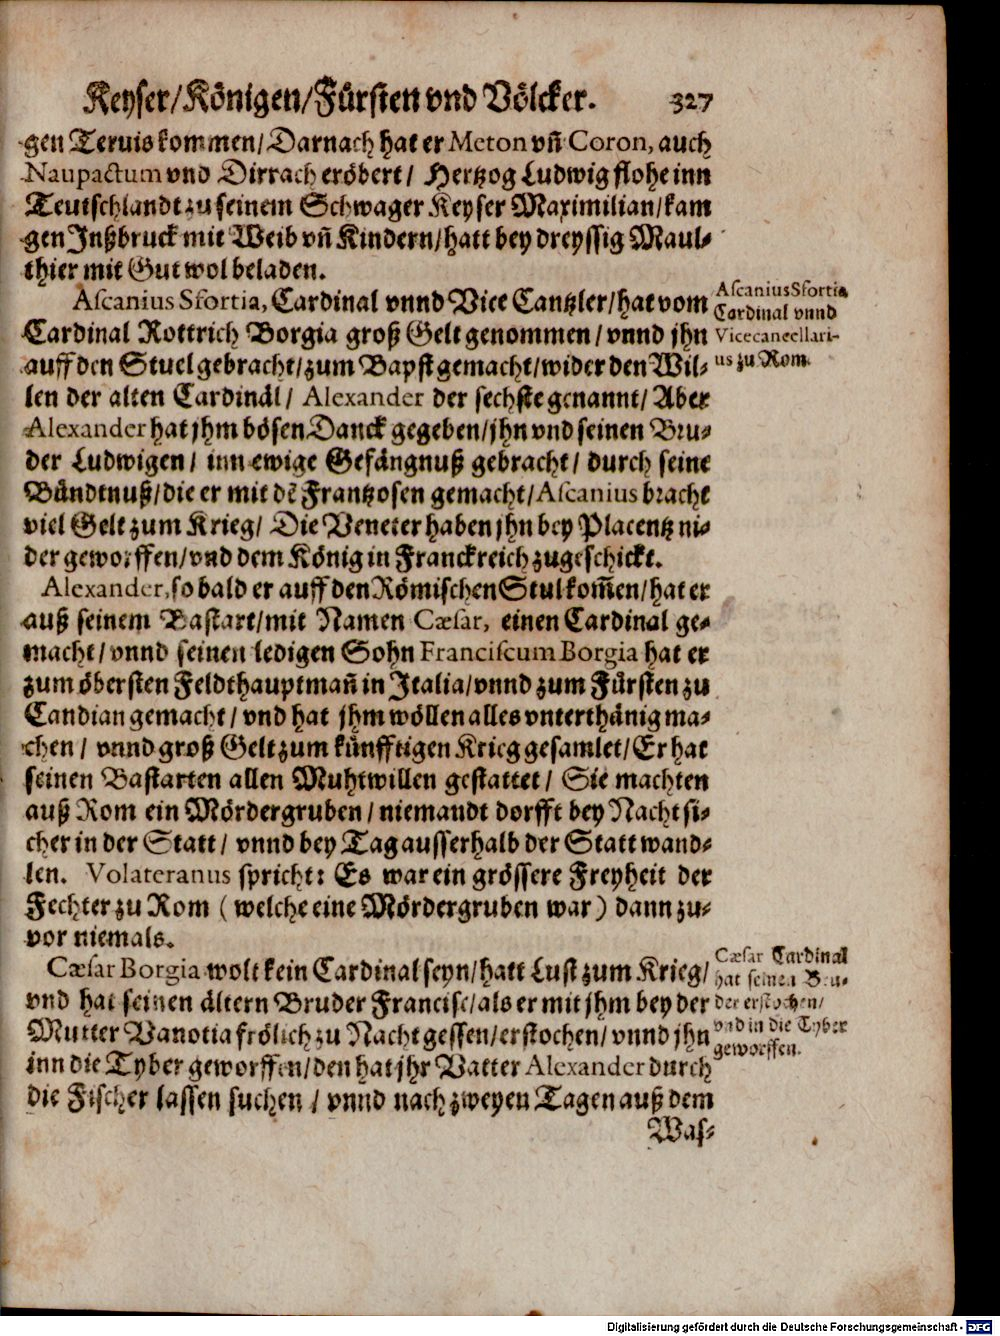 Keyser/Königen/Fürsten vnd Völcker. 327
gen Teruis kommen/Darnach hat er Meton vñ Coron, auch
Naupactum vnd Dirrach eröbert/ Hertzog Ludwig flohe inn
Teutschlandt zu seinem Schwager Keyser Maximilian/kam
gen Jnßbruck mit Weib vñ Kindern/hatt bey dreyssig Maul-
thier mit Gut wol beladen.
Ascanius Sfortia, Cardinal vnnd Vice Cantzler/hat vom
Cardinal Rottrich Borgia groß Gelt genommen/vnnd jhn
auff den Stuel gebracht/zum Bapst gemacht/wider den Wil-
len der alten Cardinäl/ Alexander der sechste genannt/ Aber
Alexander hat jhm bösen Danck gegeben/jhn vnd seinen Bru-
der Ludwigen/ inn ewige Gefängnuß gebracht/ durch seine
Bündtnuß/die er mit dē Frantzosen gemacht/Ascanius bracht
viel Gelt zum Krieg/ Die Venerer haben jhn bey Placentz ni-
der geworffen/vnd dem König in Franckreich zugeschickt.
Ascanius Sfortia,
Cardinal vnnd
Vicecancellari-
us zu Rom.
Alexander, so bald er auff den Römischen Stul kom̃en/hat er
auß seinem Bastart/mit Namen Cæsar, einen Cardinal ge-
macht/vnnd seinen ledigen Sohn Franciscum Borgia hat er
zum öbersten Feldthauptmañ in Italia/vnnd zum Fürsten zu
Candian gemacht/vnd hat jhm wöllen alles vnterthänig ma-
chen/ vnnd groß Gelt zum künfftigen Krieg gesamlet/Er hat
seinen Bastarten allen Muhtwillen gestattet/ Sie machten
auß Rom ein Mördergruben/niemandt dorfft bey Nacht si-
cher in der Statt/ vnnd bey Tag ausserhalb der Statt wand-
len. Volateranus spricht: Es war ein grössere Freyheit der
Fechter zu Rom (welche eine Mördergruben war) dann zu-
vor niemals.
Cæsar Borgia wolt kein Cardinal seyn/hatt Lust zum Krieg/
vnd hat seinen ältern Bruder Francisc/als er mit jhm bey der
Mutter Vanotia frölich zu Nacht gessen/erstochen/vnnd jhn
inn die Tyber geworffen/den hat jhr Vatter Alexander durch
die Fischer lassen suchen/ vnnd nach zweyen Tagen auß dem
Cæsar Cardinal
hat seinen Bru-
der erstochen/
vnd in die Tyber
geworffen.
Was-
Digitalisierung gefördert durch die Deutsche Forschungsgemeinschaft - DFG